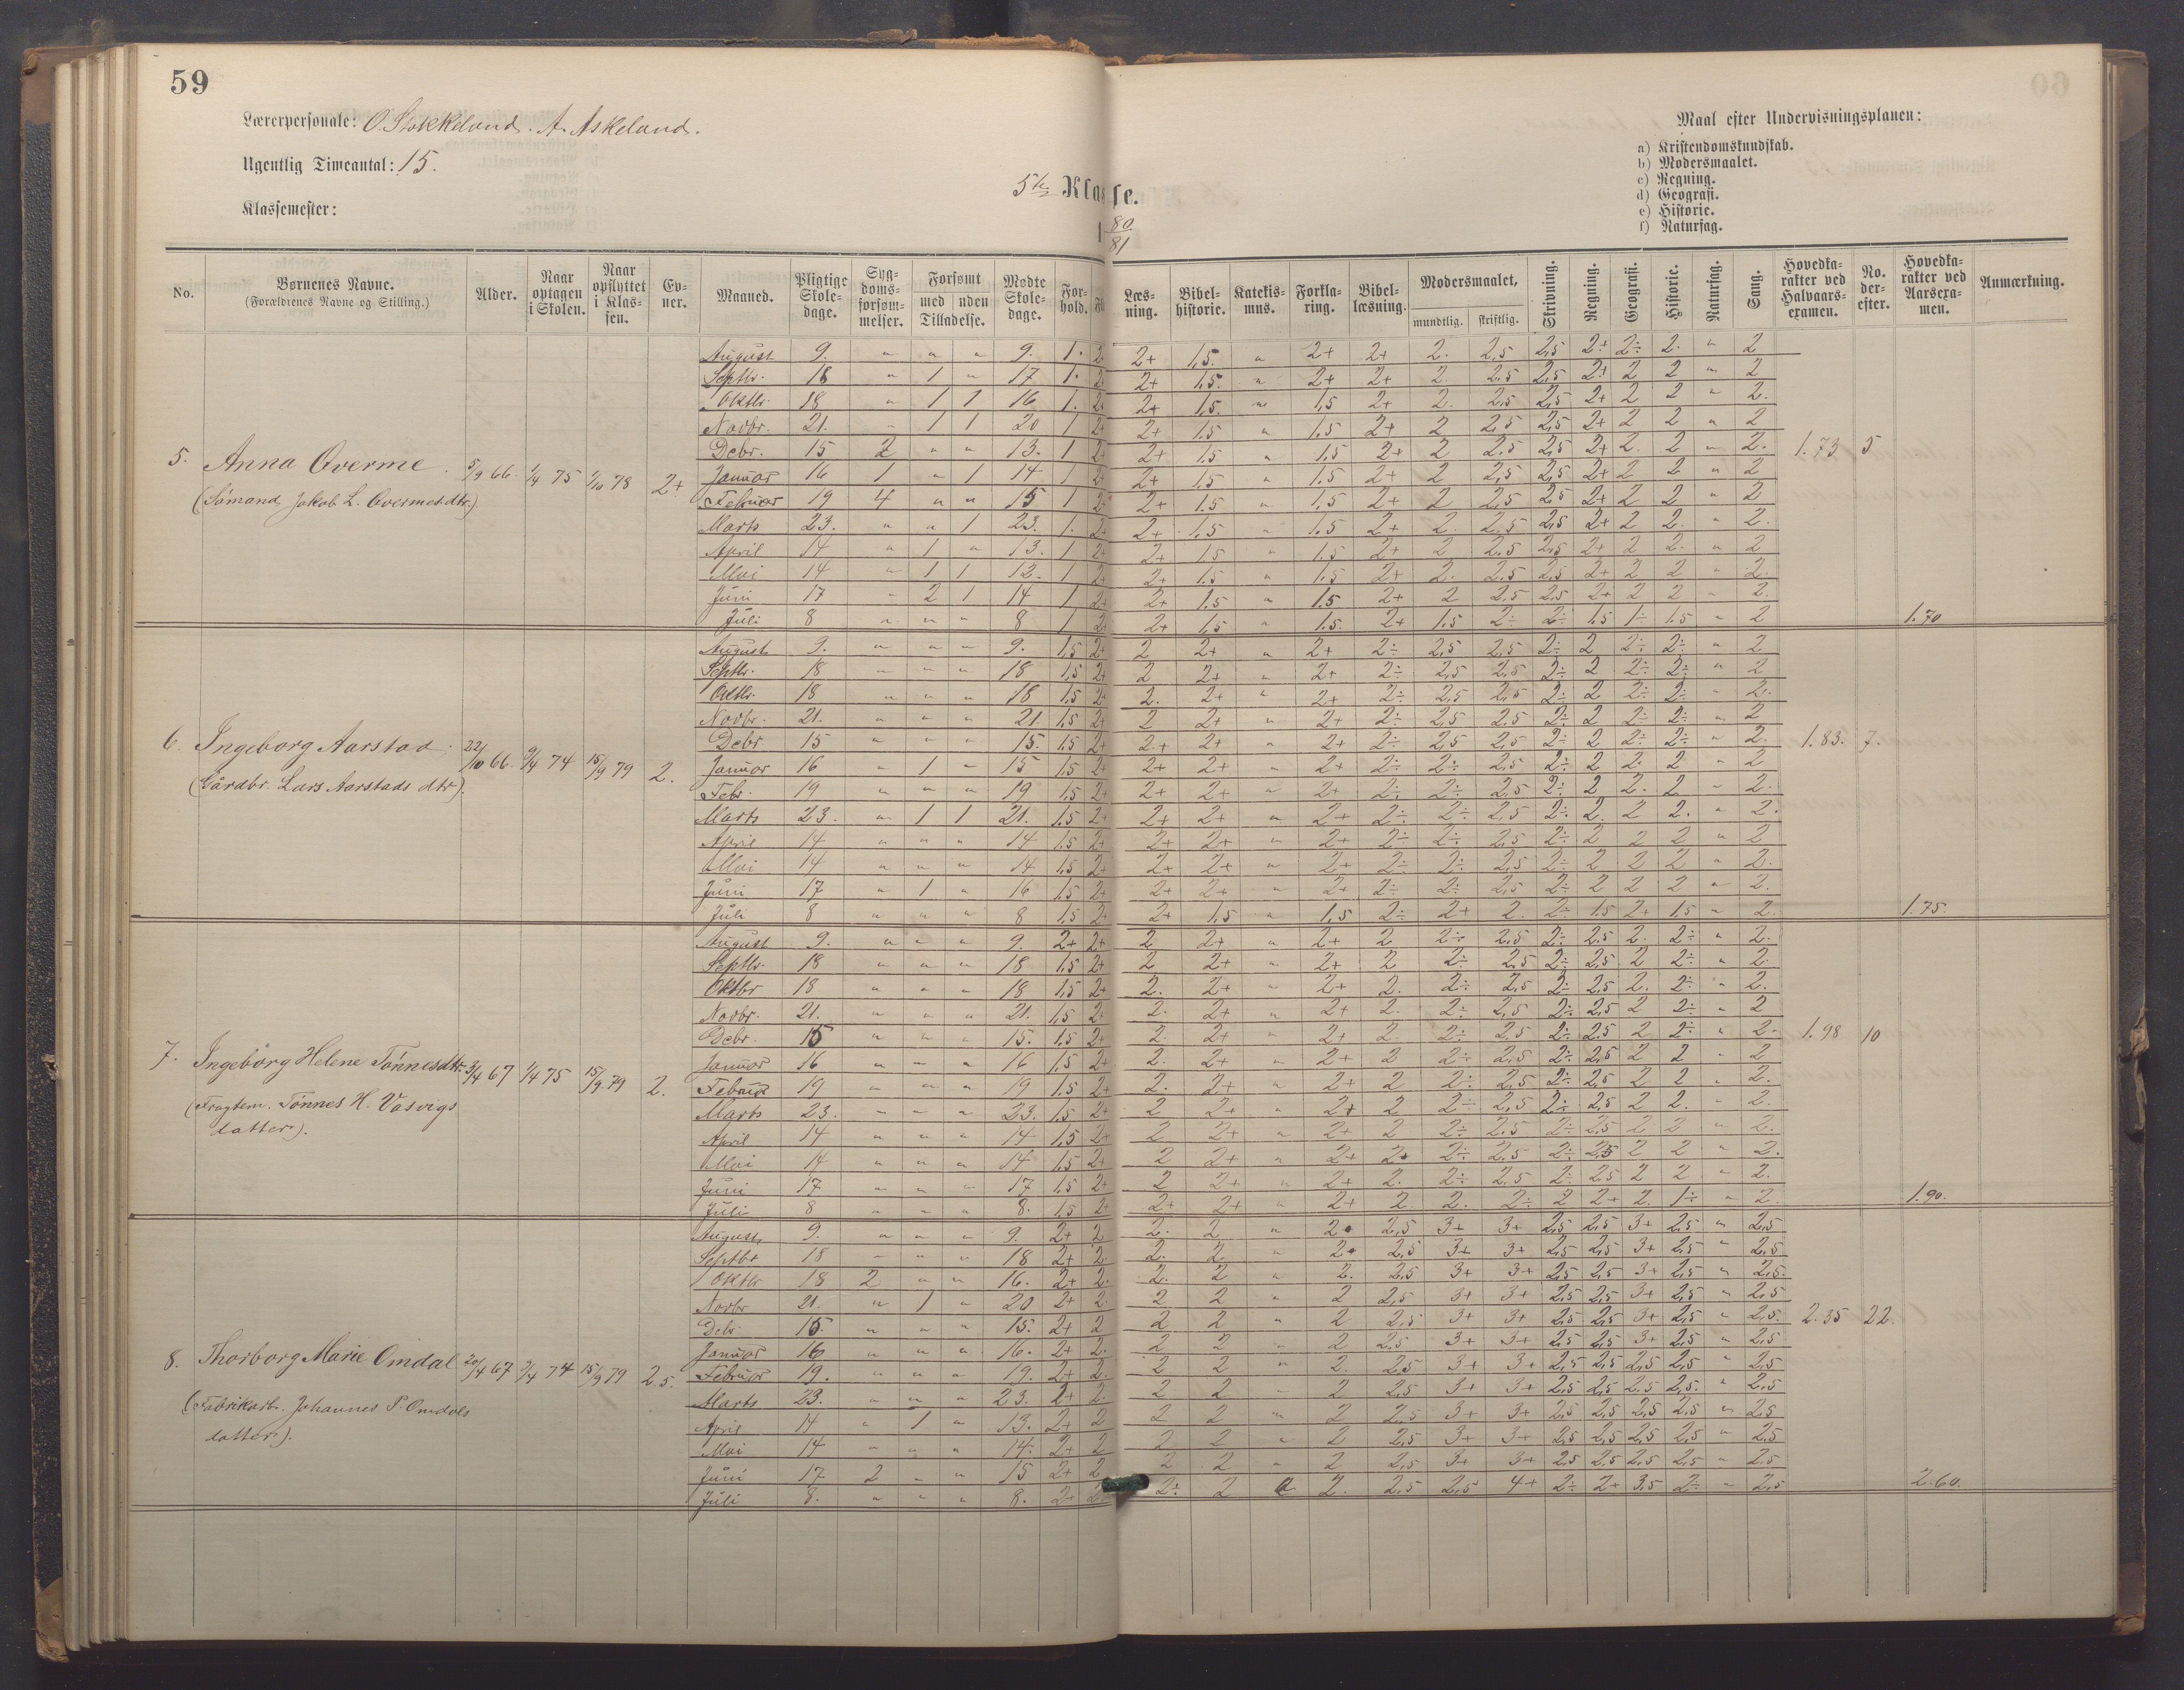 59
Lærerpersonale: O. Stokkeland. A. Askeland.
Ugentlig Timeantal: 15.
Klassemester:
5te Klasse.
1 80/81
Maal efter Undervisningsplanen:
a) Kristendomskundskab.
b) Modersmaalet.
c) Regning.
d) Geografi.
e) Historie.
f) Naturfag.
No. | Børnenes Navne. (Forældrenes Navne og Stilling.) | Alder. | Naar optagen i Skolen. | Naar opflyttet i Klassen. | Evner. | Maaned. | Pligtige Skoledage. | Sygdomsforsømmelser. | Forsømt med / uden Tilladelse. | Mødte Skoledage. | Forhold. | Læsning. | Bibelhistorie. | Katekismus. | Forklaring. | Bibellæsning. | Modersmaalet, mundtlig. skriftlig. | Skrivning. | Regning. | Geografi. | Historie. | Naturfag. | Sang. | Hovedkarakter ved Halvaarsexamen. | No. derefter. | Hovedkarakter ved Aarsexamen. | Anmærkning.
5. Anna Overme. 5/9 66. 1/4 75 1/10 78 2+
(Sømand Jakob L. Overmes dtr.)
August 9. " " " 9. 1. 2+ 1,5. " 2+ 2+ 2. 2,5 2,5 2÷ 2÷ 2. " 2
Septbr. 18 " 1 " 17 1. 2+ 1,5. " 2+ 2+ 2. 2,5 2,5 2+ 2 2 " 2
Oktbr. 18 " 1 1 16 1. 2+ 2+ 1,5. " 1,5 2+ 2. 2,5 2,5 2+ 2 2 " 2.
Novbr. 21. " 1 1 20 1 2+ 2+ 1,5 " 1,5 2+ 2 2,5 2,5 2+ 2 2 " 2
Debr. 15 2 " " 13. 1 2+ 2+ 1,5 " 1,5 2+ 2 2,5 2,5 2+ 2. 2 " 2. 1.73 5
Januar 16 1 " 1 14 1 2+ 2+ 1,5 " 1,5 2+ 2 2,5 2,5 2+ 2 2 " 2
Februar 19 4 " " 15 1 2+ 2+ 1,5 " 1,5 2+ 2 2,5 2,5 2+ 2 2 " 2
Marts 23. " " 1 23. 1. 2+ 2+ 1,5 " 1,5 2+ 2. 2,5 2,5 2+ 2 2. " 2.
April 14 " 1 " 13. 1 2+ 2+ 1,5 " 1,5 2+ 2 2,5 2,5 2+ 2 2. " 2
Mai 14 " 1 1 12. 1 2+ 2+ 1,5 " 1,5 2+ 2. 2,5 2,5 2+ 2 2 " 2.
Juni 17 " 2 1 14 1 2+ 2+ 1,5 " 1,5 2+ 2 2,5 2,5 2+ 2 2 " 2.
Juli 8 " " " 8 1 2+ 2+ 1,5 " 1,5. 2+ 1,5 2÷ 2÷ 1,5 1÷ 1,5 " 2 1.70
6. Ingeborg Aarstad. 22/10 66. 9/4 74 15/9 79 2.
(Gårdbr. Lars Aarstads dtr).
August 9. " " " 9. 1,5 2+ 2 2+ " 2+ 2÷ 2,5 2,5 2÷ 2 2÷ 2÷ " 2
Septbr. 18 " " " 18 1,5 2+ 2 2+ " 2+ 2÷ 2,5 2,5 2÷ 2 2÷ 2÷ " 2
Oktbr. 18 " " " 18 1,5 2+ 2. 2+ " 2+ 2÷ 2,5 2,5 2÷ 2 2÷ 2÷ " 2.
Novbr. 21. " " " 21. 1,5 2+ 2 2+ " 2+ 2÷ 2,5 2,5 2÷ 2 2÷ 2÷ " 2
Debr 15 " " " 15. 1,5 2+ 2+ 2+ " 2+ 2÷ 2,5 2,5 2÷ 2 2÷ 2÷ " 2. 1.83. 7.
Januar 16 " 1 " 15 1,5 2+ 2+ 2+ " 2+ 2÷ 2÷ 2,5 2÷ 2 2. 2 " 2
Febr. 19 " " " 19 1,5 2+ 2+ 2+ " 2+ 2÷ 2÷ 2,5 2÷ 2 2. 2 " 2.
Marts 23. " 1 1 21. 1,5 2+ 2+ 2+ " 2+ 2÷ 2÷ 2,5 2÷ 2. 2 2. " 2.
April 14 " " " 14 1,5 2+ 2+ 2+ " 2+ 2÷ 2÷ 2,5 2÷ 2 2 2 " 2
Mai 14 " " " 14 1,5 2+ 2+ 2+ " 2+ 2÷ 2÷ 2,5 2÷ 2 2 2 " 2.
Juni 17 " 1 " 16 1,5 2+ 2+ 2+ " 2+ 2÷ 2÷ 2,5 2÷ 2 2 2 " 2.
Juli 8 " " " 8 1,5 2+ 2+ 1,5 " 1,5 2÷ 2+ 2. 2÷ 1,5 2+ 1,5 " 2. 1.75.
7. Ingeborg Helene Tønnesdtr. 3/4 67 1/4 75 15/9 79 2.
(Fragtem. Tønnes H. Våsvigs
datter).
August 9. " " " 9. 2+ 2+ 2 2+ " 2+ 2 2÷ 2,5 2÷ 2,5 2. 2÷ " 2.
Septbr. 18 " " " 18 1,5 2+ 2 2+ " 2+ 2 2÷ 2,5 2÷ 2,5 2 2÷ " 2.
Oktbr 18 " " " 18 1,5 2+ 2. 2+ " 2+ 2. 2÷ 2,5 2÷ 2,5 2. 2÷ " 2.
Novbr. 21. " " " 21. 1,5 2+ 2. 2+ " 2+ 2. 2÷ 2,5 2÷ 2,5 2 2÷ " 2
Debr. 15 " " " 15. 1,5 2+ 2. 2+ " 2+ 2 2÷ 2,5 2÷ 2,5 2 2÷ " 2. 1.98 10
Januar 16 " " " 16 1,5 2+ 2. 2+ " 2+ 2 2÷ 2,5 2÷ 2,5 2 2 " 2
Februar 19 " " " 19 1,5 2+ 2. 2+ " 2+ 2 2÷ 2,5 2÷ 2,5 2 2 " 2.
Marts 23. " " " 23. 1,5 2+ 2 2+ " 2+ 2 2÷ 2,5 2÷ 2,5 2 2. " 2.
April 14 " " " 14 1,5 2+ 2 2+ " 2+ 2 2÷ 2,5 2÷ 2,5 2 2 " 2.
Mai 14 " " " 14 1,5 2+ 2 2+ " 2+ 2+ 2÷ 2,5 2÷ 2,5 2 2 " 2.
Juni 17 " " " 17 1,5 2+ 2 2+ " 2+ 2. 2÷ 2,5 2÷ 2,5 2 2 " 2.
Juli 8 " " " 8. 1,5 2+ 2+ 2+ " 2+ 2 2. 2÷ 2 2+ 2. 1÷ " 2. 1.90.
8. Thorborg Marie Omdal 20/4 67 2/4 74 15/9 79 2.5.
(Fabrikarb. Johannes P. Omdals
datter).
August 9. " " " 9. 2+ 2 2. 2 " 2 2,5 3+ 3+ 2,5 2,5 3+ 2,5 " 2,5
Septbr 18 " " " 18 2+ 2. 2. 2. " 2 2,5 3+ 3+ 2,5 2,5 3+ 2,5 " 2,5
Oktbr 18 2 " " 16. 2+ 2. 2. 2 " 2. 2,5 3+ 3+ 2,5 2,5 3+ 2,5 " 2,5.
Novbr 21. " 1 " 20 2+ 2. 2 2 " 2 2,5 3+ 3+ 2,5 2,5 3+ 2,5 " 2,5
Debr 15. " " " 15. 2+ 2 2 2 " 2 2,5 3+ 3+ 2,5 2,5 3+ 2,5 " 2,5. 2.35 22.
Januar 16 " " " 16. 2+ 2. 2 2 " 2 2,5 3+ 3+ 2,5 2,5 3+ 2,5 " 2,5
Februar 19. " " " 19. 2+ 2. 2 2 " 2. 2,5 3+ 3+ 2,5 2,5 2,5 2,5 " 2,5
Marts 23. " " " 23. 2+ 2. 2 2 " 2 2,5 3+ 3+ 2,5 2,5 2,5 2,5. " 2,5
April 14 " 1 " 13. 2+ 2 2 2 " 2 2,5 3+ 3+ 2,5 2,5 2,5 2,5 " 2,5
Mai 14 " " " 14. 2+ 2 2 2 " 2 2,5 3+ 3+ 2,5 2,5 2,5 2,5 " 2,5
Juni 17 2 " " 15 2+ 2 2 2 " 2 2,5 3+ 3+ 2,5 2,5 2,5 2,5 " 2,5
Juli 8. " " " 8. 2+ 2 2÷ 2 " 2. 2,5 2,5 4+ 2÷ 2+ 3,5 2÷ " 2,5 2.60.